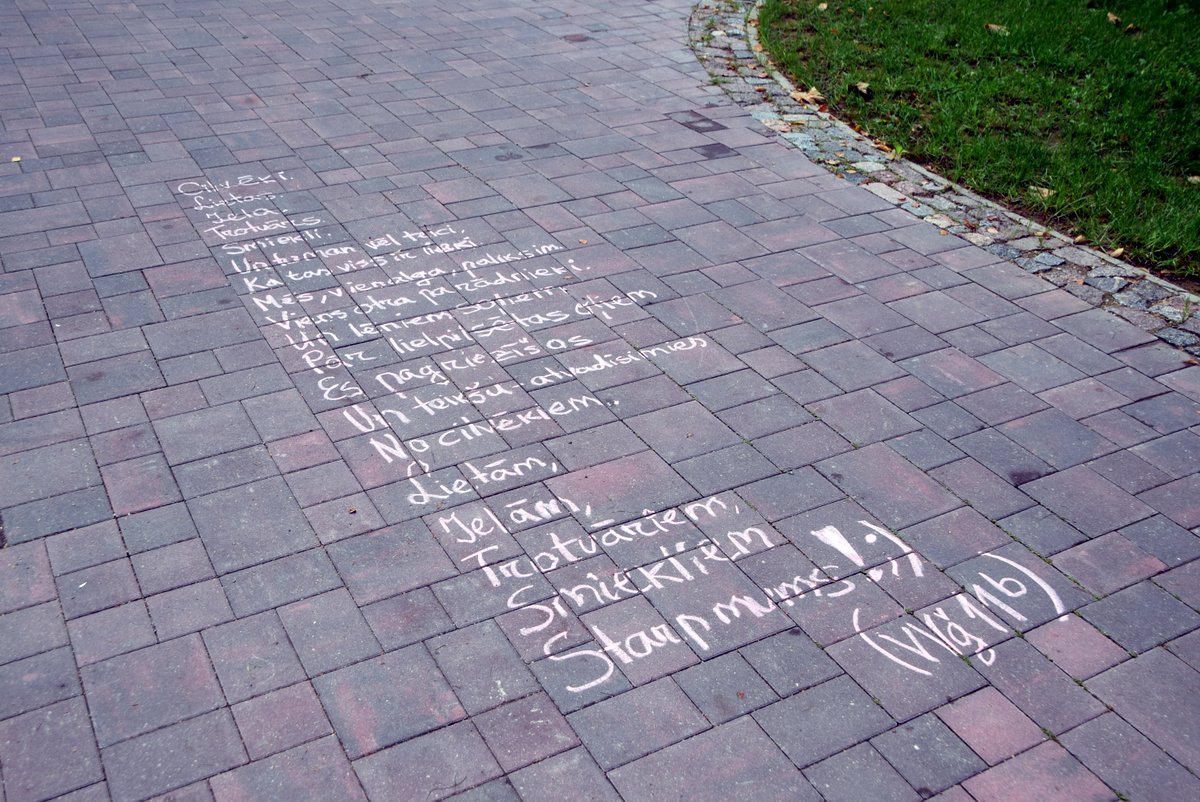 Cilvēki.
Lietas.
Ielā
Trotuārs
Smiekli.
Un tu man vēl tici,
Ka tas viss ir
Mēs, vienalga, paliksim
Viens otra parādnieki.
Un lēniem soļiem
Par lielpilsētas ceļiem
Es pagriezīšos
Un teikšu - atvadīsimies
No cilvēkiem.
Lietām,
Ielām,
Trotuāriem,
Smiekliem
Starp mums! ;)
(Wg11b)